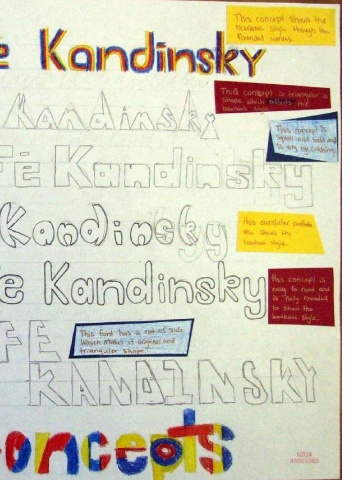 This concept shows the
bauhaus style through the
rounded curves.
e Kandinsky
This concept is triangular in
shape which reflects the
bauhaus style.
Kandinsky
This concept is
square and bold and
is very eye catching.
Fé Kandinsky
This curricular
the shows the
bauhaus style.
Kandinsky
This concept is
easy to read and
is fully rounded
to show the
bauhaus style.
e Kandinsky
This font has a cut of side
which makes it original and
triangular shape.
FE
KANDINSKY
oncepts
ASSESSED